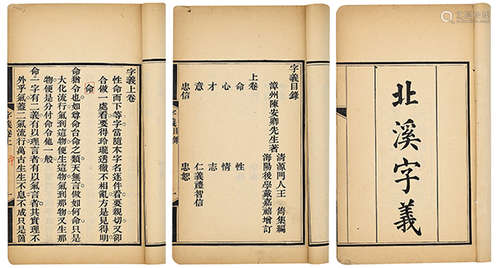 北溪字義
字義目錄
漳州陳安卿先生著
清源門人王雋集編
海陽後學戴嘉禧增訂
上卷
命 性
心 情
才 志
意 仁義禮智信
忠信 忠恕
字義目錄 一
字義上卷
性命而下等字當隨本字各逐件看要親切又却
合做一處看要得玲瓏透徹不相亂方是見得明
命
命猶令也如尊命台命之類天無言做如何命只是
大化流行氣到這物便生這物氣到那物又生那
物便是分付命令他一般
命一字有二義有以理言者有以氣言者其實理不
外乎氣蓋二氣流行萬古生生不息不成只是箇
字義卷上